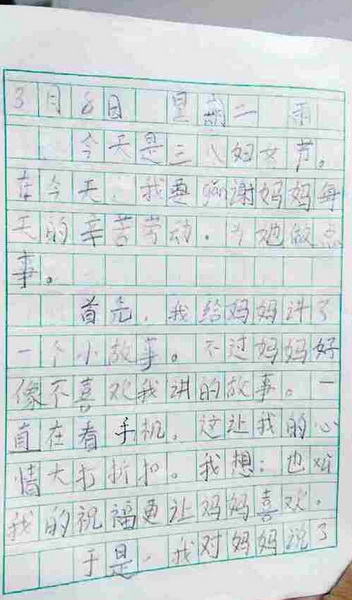 3月8日 星期二 雨
今天是三八妇女节。
在今天，我要感谢妈妈每
天的辛苦劳动，为她做点
事。
首先，我给妈妈讲了
一个小故事。不过妈妈好
像不喜欢我讲的故事。一
直在看手机。这让我的心
情大打折扣。我想：也
我的祝福更让妈妈喜欢。
于是，我对妈妈说了